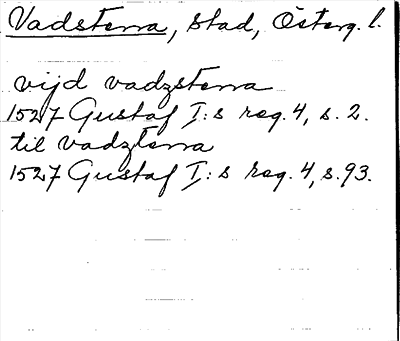 Vadstena, stad, Österg. l.
vijd vadzstena
1527 Gustaf I:s reg. 4, s. 2.
til vadztena
1527 Gustaf I:s reg. 4, s. 93.